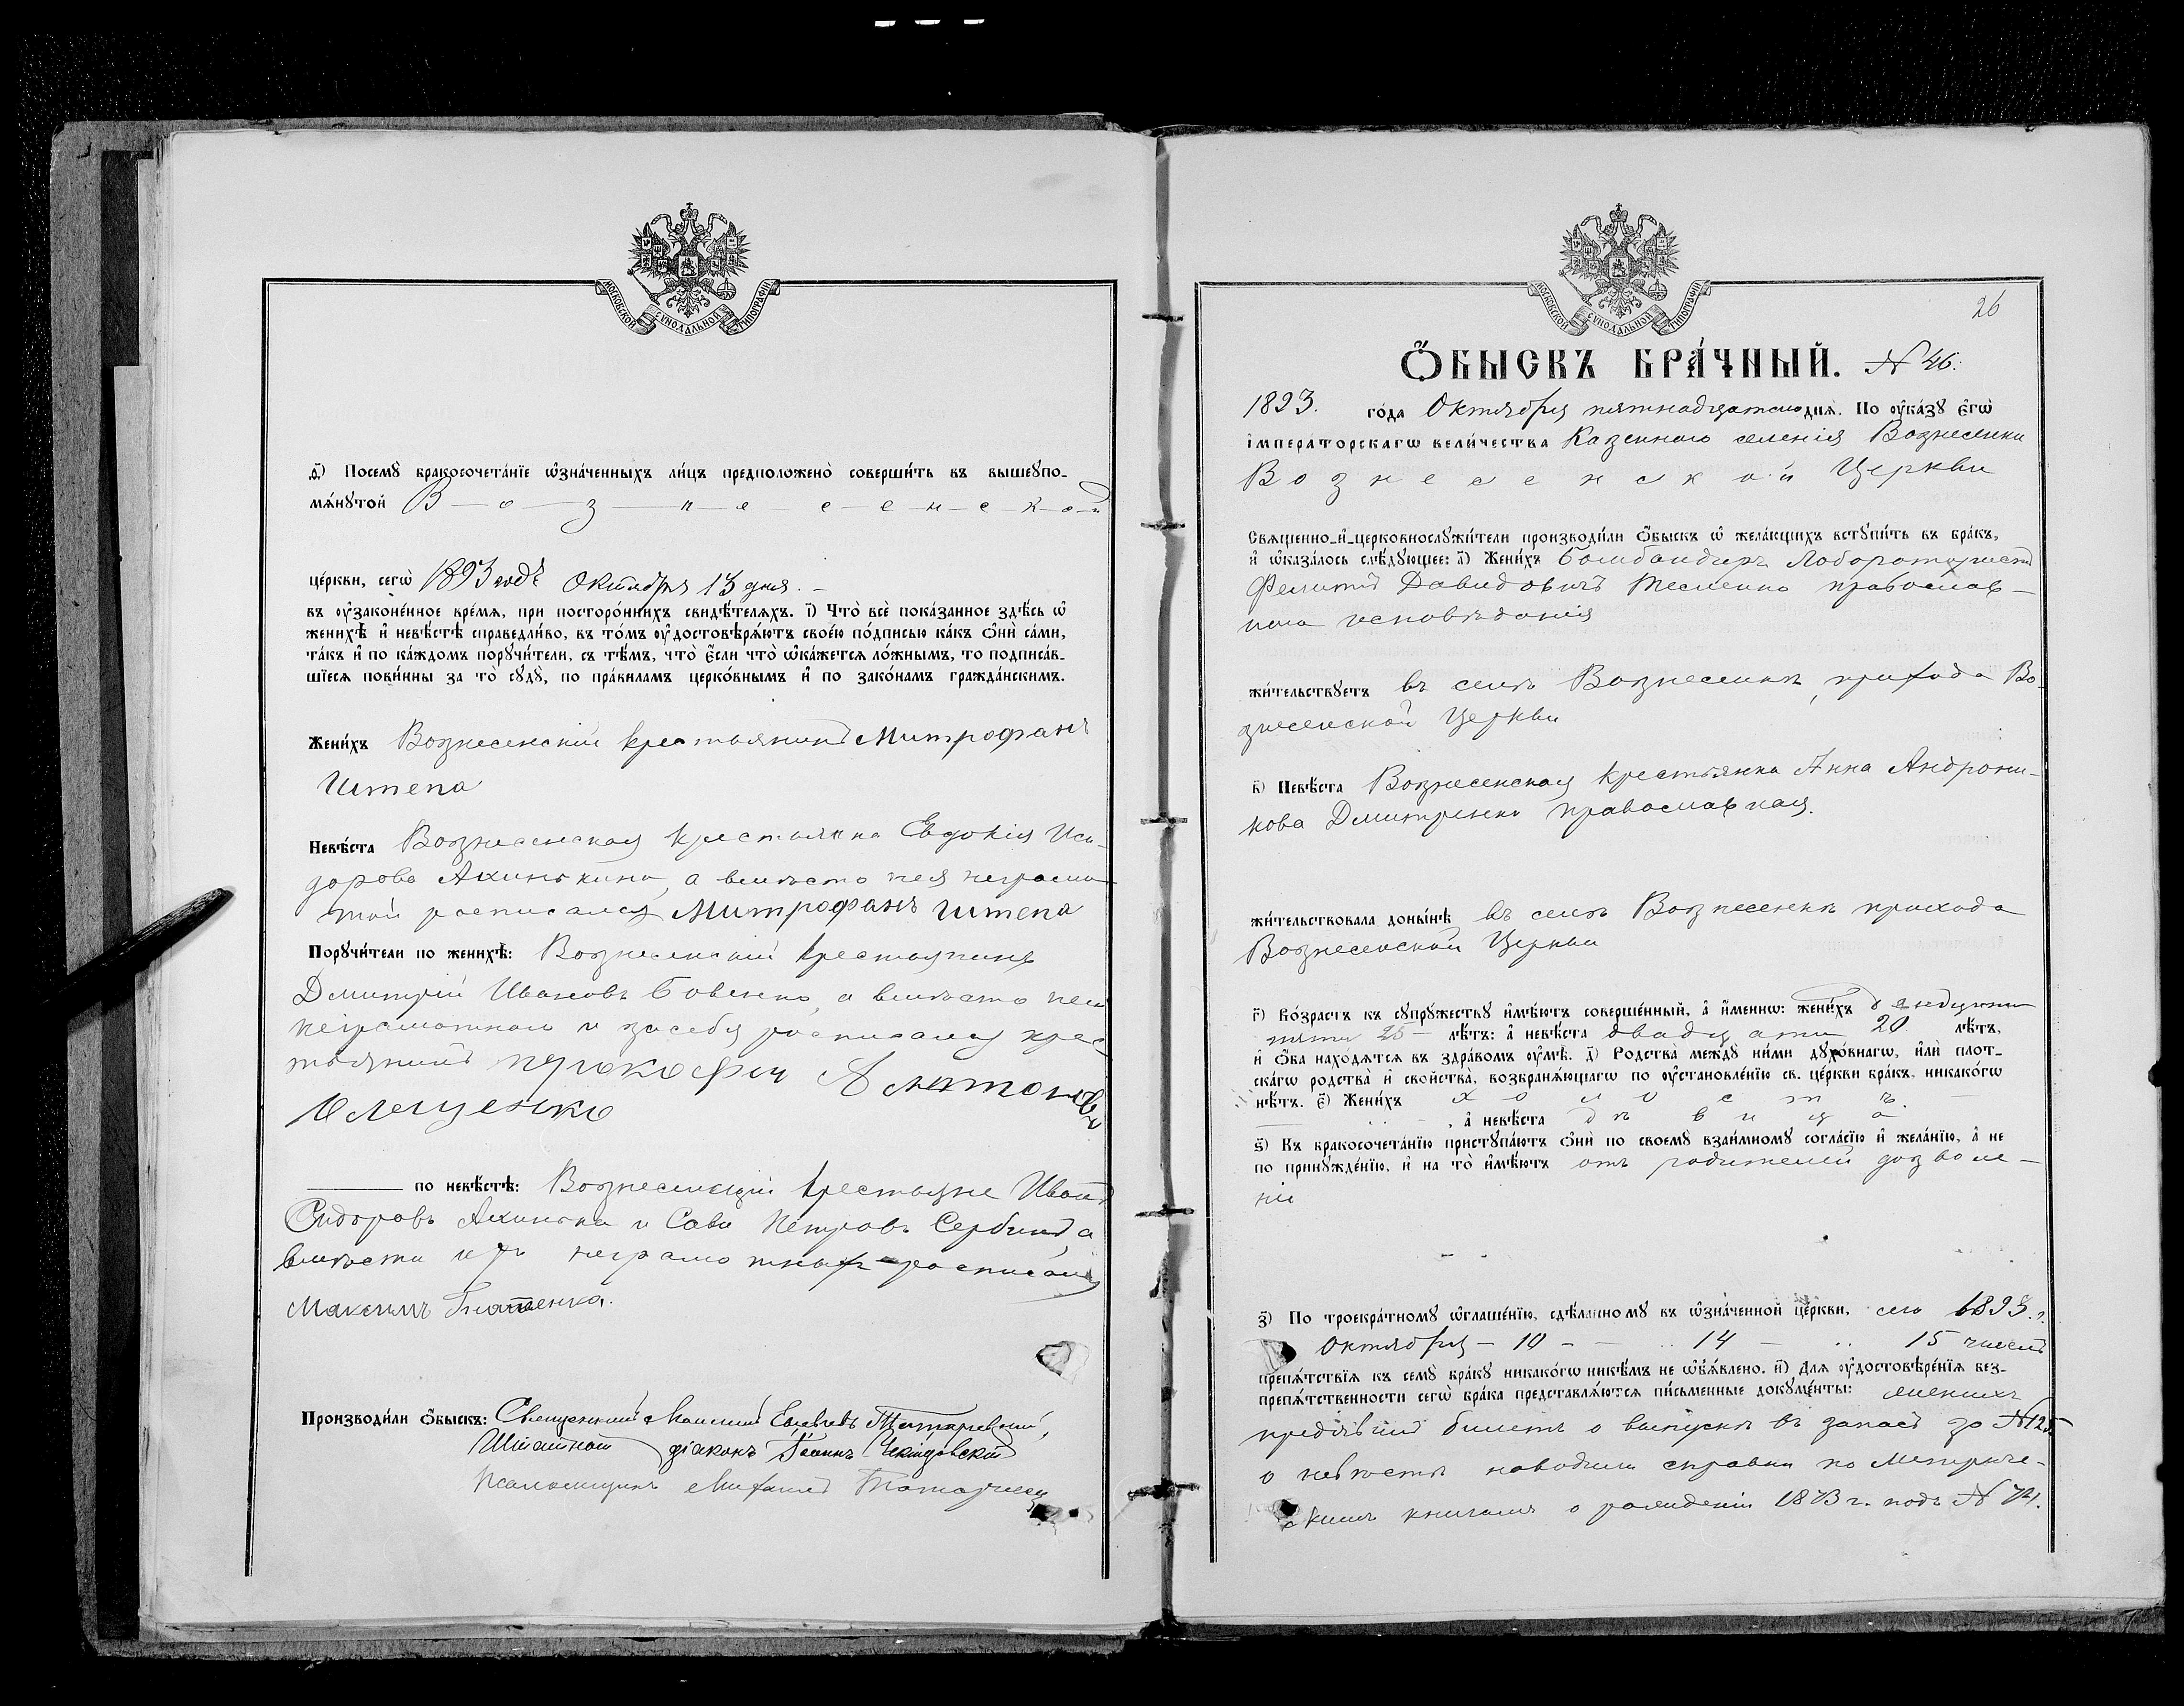 МОСКОВСКОЙ СУНОДАЛЬНОЙ ТИПОГРАФІИ
ѳ҃) Посемꙋ̀ бракосочета́нїе ѡ҆зна́ченныхъ ли́цъ предположено̀ соверши́ть въ вышеꙋпо-
мѧ́нꙋтой В-о-з-н-е-с-е-н-с-к-о-й
це́ркви, сегѡ̀ 1893 годъ Октября 13 дня. –
въ ᲂу҆зако́ненное вре́мѧ, при посторо́ннихъ свидѣ́телѧхъ. і҃) Что̀ всѐ пока́занное здѣ́сь ѡ҆
женихѣ̀ и҆ невѣ́стѣ справедли́во, въ то́мъ ᲂу҆достовѣрѧ́ютъ свое́ю по́дписью ка́къ ѻ҆нѝ са́ми,
та́къ и҆ по ка́ждомъ порꙋчи́тели, съ тѣ́мъ, что̀ є҆́сли что̀ ѡ҆ка́жетсѧ ло́жнымъ, то подписа́в-
шїесѧ пови́нны за то̀ сꙋдꙋ̀, по пра́виламъ церко́внымъ и҆ по зако́намъ гражда́нскимъ.
Жени́хъ Вознесенскій крестьянинъ Митрофанъ
Штепа
Невѣ́ста Вознесенская крестьянка Евдокія Иси-
дорова Ахинькина, а вмѣсто нея неграмо-
тной росписался Митрофанъ Штепа
Порꙋчи́тели по женихѣ̀: Вознесенскій крестьянинъ
Дмитрій Ивановъ Бовенко, а вмѣсто него
неграмотного и засебя росписался крес-
тьянинъ Прокофій Антонов
Олещенко
по невѣ́стѣ: Вознесенскіи крестьяне Иванъ
Сидоровъ Ахинька и Сава Петровъ Сербинъ, а
вмѣсто ихъ неграмотныхъ росписался
Максимъ Гнатенка.
Производи́ли ѻ҆́быскъ: Священникъ
Штатной діаконъ Іоаннъ
Псаломщикъ Михаилъ
МОСКОВСКОЙ СУНОДАЛЬНОЙ ТИПОГРАФІИ
26
Ѻ҆́БЫСКЪ БРА́ЧНЫЙ. N 46.
1893. го́да Октября пятнадцатаго днѧ̀. По ᲂу҆ка́зꙋ є҆гѡ̀
і҆мпера́торскагѡ вели́чества Казенного селенія Вознесенки
В о з н е с е н с к о й Церкви
Свѧще́нно-и҆-церковнослꙋжи́тели производи́ли ѻ҆́быскъ ѡ҆ жела́ющихъ встꙋпи́ть въ бра́къ,
и҆ ѡ҆каза́лось слѣ́дꙋющее: а҃) Жени́хъ Бомбандиръ Лоборатористъ
Давидовичъ Тесленко православ-
ного исповѣданія
жи́тельствꙋетъ въ селѣ Вознесенкѣ, прихода Во-
знесенской Церкви
в҃) Невѣ́ста Вознесенская крестьянка Анна Андрони-
кова Дмитренко православная.
жи́тельствовала доны́нѣ въ селѣ Вознесенкѣ прихода
Вознесенской Церкви
г҃) Во́зрастъ къ сꙋпрꙋ́жествꙋ и҆мѣ́ютъ соверше́нный, а҆ и҆́меннѡ: жени́хъ двадцати
пяти 25 – лѣ́тъ: а҆ невѣ́ста двадцати 20 лѣ́тъ,
и҆ ѻ҆́ба нахо́дятсѧ въ здра́вомъ ᲂу҆мѣ̀. д҃) Родства̀ междꙋ̀ ни́ми дꙋхо́внагѡ, и҆лѝ плот-
ска́гѡ родства̀ и҆ сво́йства, возбранѧ́ющагѡ по ᲂу҆становле́нїю св. це́ркви бра́къ, никако́гѡ
нѣ́тъ. є҃) Жени́хъ х о л о с т ъ.
, а҆ невѣ́ста д ѣ в и ц а
ѕ҃) Къ бракосочета́нїю пристꙋпа́ютъ ѻ҆нѝ по своемꙋ̀ взаи́мномꙋ согла́сїю и҆ жела́нїю, а҆ не
по принꙋжде́нїю, и҆ на то̀ и҆мѣ́ютъ отъ родителей дозволе-
ніе
з҃) По троекра́тномꙋ ѡ҆глаше́нїю, сдѣ́ланномꙋ въ ѡ҆зна́ченной це́ркви, сего 1893 г.
Октября – 10 – – 14 – 15 чиселъ
препѧ́тствїѧ къ семꙋ̀ бра́кꙋ никако́гѡ никѣ́мъ не ѡ҆б̾ѧ́влено. и҃) Для ᲂу҆достовѣре́нїѧ без-
препѧ́тственности сегѡ̀ бра́ка представлѧ́ютсѧ пи́сьменные докꙋме́нты: женихъ
предъявилъ билетъ о выпускѣ въ запасъ за N 125
о невѣстѣ наводили справки по метриче-
скимъ книгамъ о рожденіи 1873 г. подъ N 74.